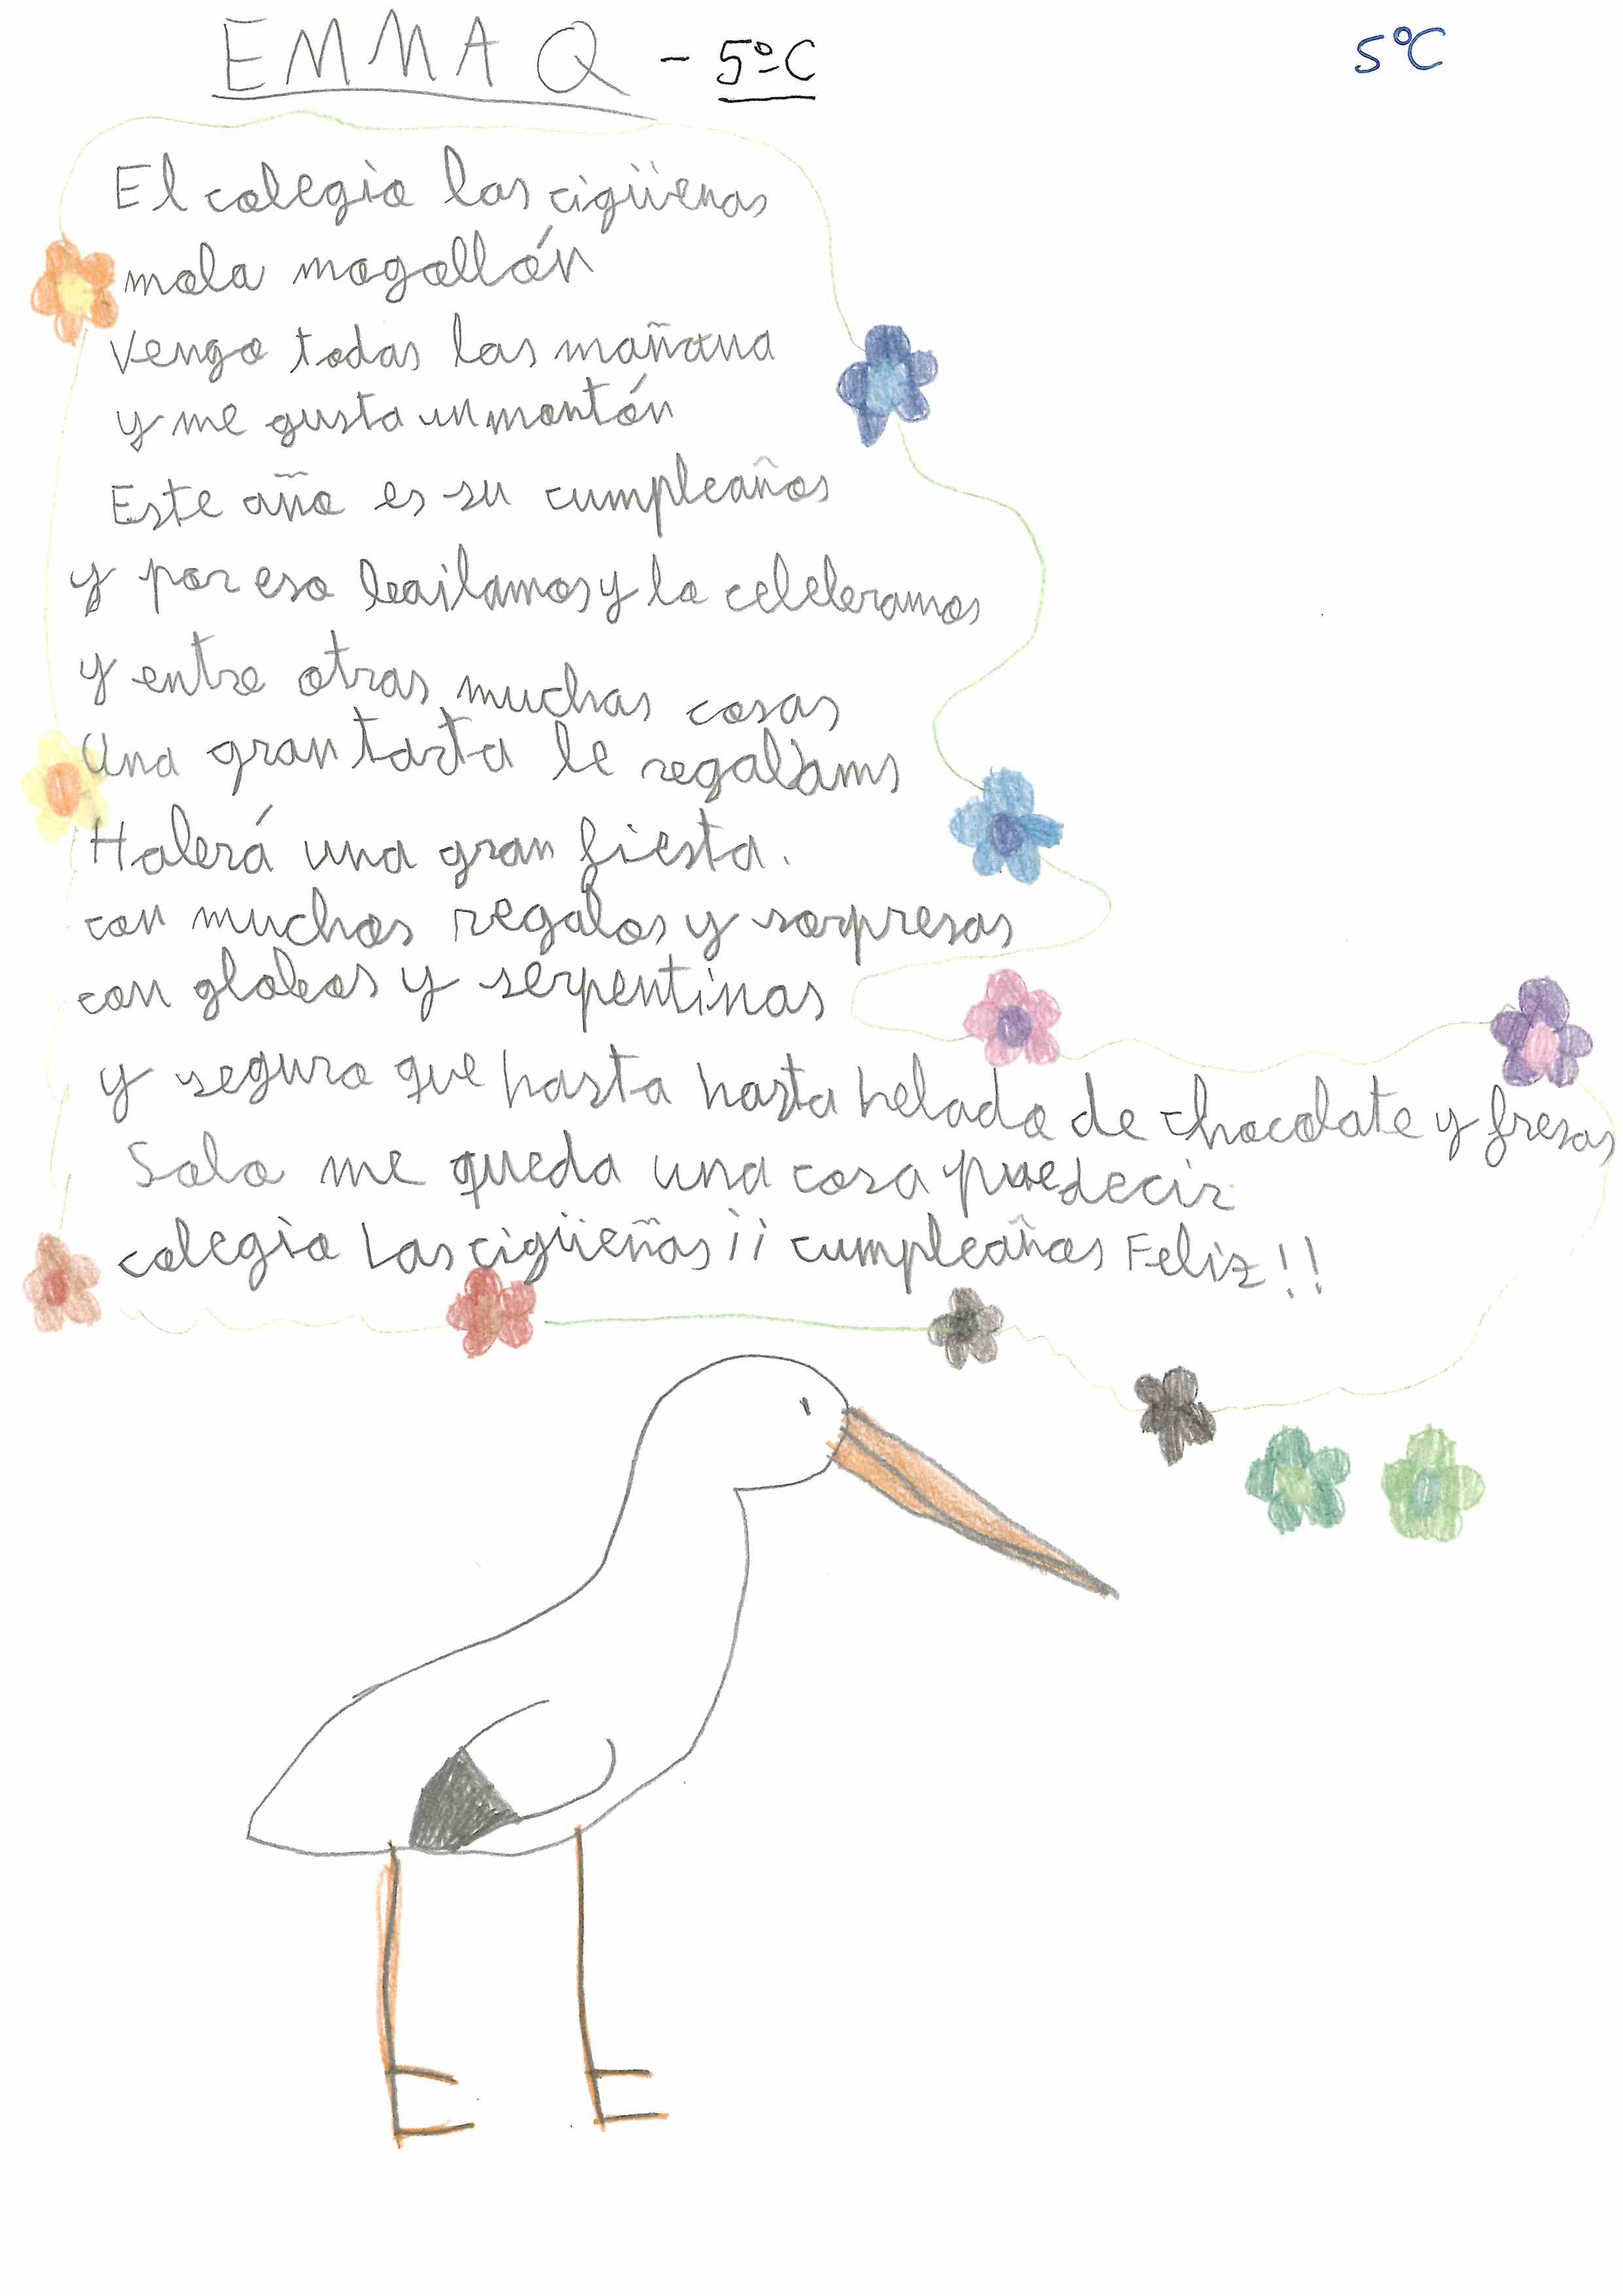 EMMA Q - 5ºC
5ºC
El colegio las cigüenas
mola mogollón
Vengo todas las mañana
y me gusta un montón
Este año es su cumpleaños
y por eso bailamos y lo celebramos
y entre otras muchas cosas
Una gran tarta le regalams
Haberá una gran fiesta.
con muchos regalos y sorpresas
con globos y serpentinas
y seguro que hasta hasta helado de chocolate y fresas
Solo me queda una cosa que decir
colegio Las cigüeñas ¡¡ cumpleaños Feliz!!